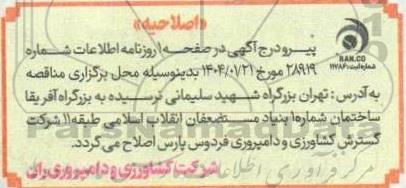 «اصلاحیه»
پیرو درج آگهی در صفحه ۱ روزنامه اطلاعات شماره
۲۸۹۱۹ مورخ ۱۴۰۴/۰۷/۲۱ بدینوسیله محل برگزاری مناقصه
به آدرس : تهران بزرگراه شهید سلیمانی نرسیده به بزرگراه آفریقا
ساختمان شماره۱ بنیاد مستضعفان انقلاب اسلامی طبقه ۱۱ شرکت
گسترش کشاورزی و دامپروری فردوس پارس اصلاح می‌گردد.
شرکت کشاورزی و دامپروری ران
RAN.CO
شماره ثبت: ۱۱۲۸۶
ParsNamadData
مرکز فرآوری اطلاعات